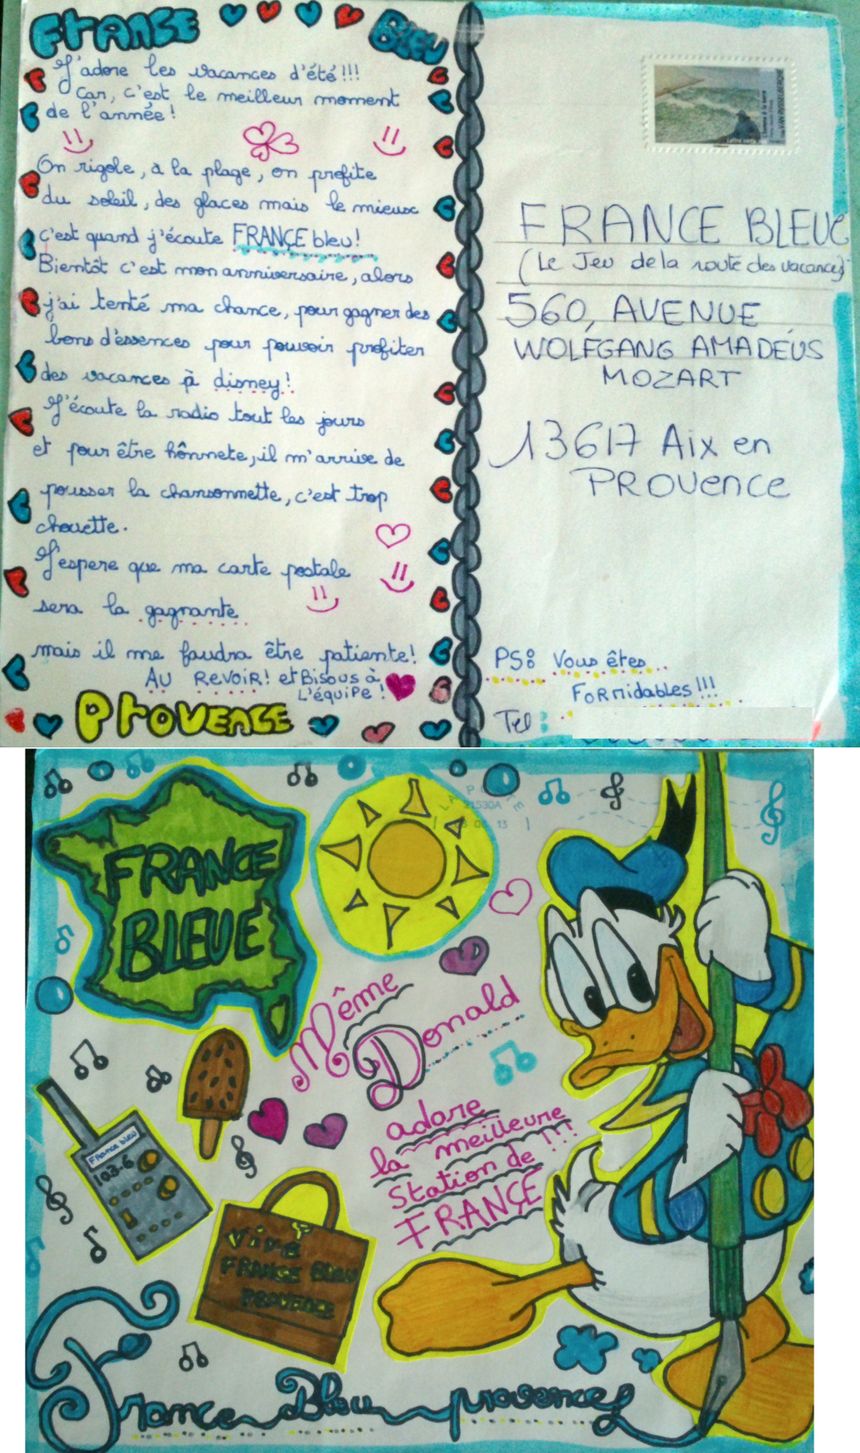 France Bleu
J'adore les vacances d'été!!!
Car, c'est le meilleur moment
de l'année!
On rigole, à la plage, on profite
du soleil, des glaces mais le mieux
c'est quand j'écoute FRANCE bleu!
Bientôt c'est mon anniversaire, alors
j'ai tenté ma chance, pour gagner des
bons d'essences pour pouvoir profiter
des vacances à disney!
J'écoute la radio tout les jours
et pour être hônnete, il m'arrive de
pousser la chansonnette, c'est trop
chouette.
J'espere que ma carte postale
sera la gagnante
mais il me faudra être patiente!
Au Revoir! et Bisous à
L'équipe!
Provence
FRANCE BLEUE
(Le Jeu de la route des vacances)
560, AVENUE
WOLFGANG AMADÉUS
MOZART
13617 Aix en
PROVENCE
PS: Vous êtes
FoRmidables!!!
Tel:
FRANCE
BLEUE
21530A
Même
Donald
adore
la meilleure
Station de !!!
FRANCE
France bleu
103.6
Vive
FRANCE BLEU
PROVENCE
France Bleu provence